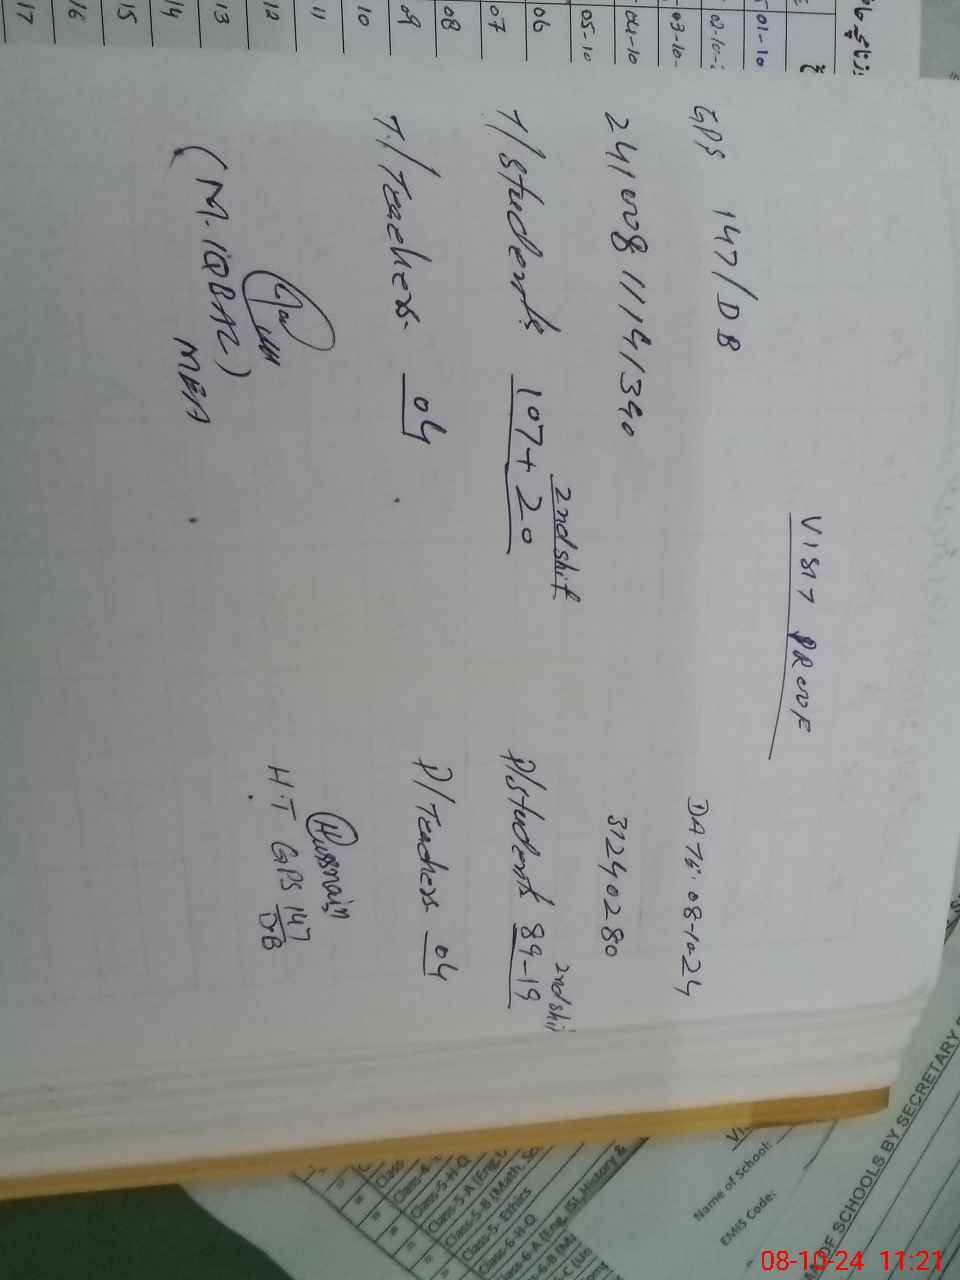 VISIT PROOF
GPS 147/DB DATE: 08-10-24
24100811141340 31240280
T/Students 107+20 2nd shift P/Students 89-19 2nd shi
T./Teachers. 04 P/Teachers 04
(M. IQBAL) Husnain
MEA H.T GPS 147
DB
01-10
02-10-
03-10-
04-10
05-10
06
07
08
09
10
11
12
13
14
15
16
17
OF SCHOOLS BY SECRETARY
Name of School:
EMIS Code:
Class-5-H-Q
Class-5-A (Eng,
Class-5-B (Math, Sc
Class-5 - Ethics
Class-6-H-Q
-6-A (Eng, ISL, History &
-6-B (M
08-10-24 11:21